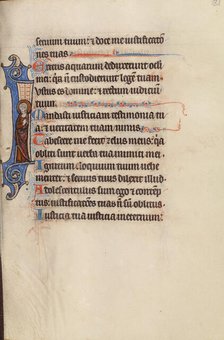 seruum tuum: & doce me iustificatio
nes tuas
Exitus aquarum deduxerunt oculi
mei: q̄a n̄ custodierunt legem tuam
Iustus es domine: & rectum iudiciū
tuum
Mandasti iusticiam testimonia tu
a: & ueritatem tuam nimis
Tabescere me fecit zelus meus: q̄a
obliti sunt uerba tua inimici mei
Ignitum eloquium tuum uehe
menter: & seruus tuus dilexit illud
Adolescentulus sum ego & contemp
tus: iustificatiōes tuas n̄ sū oblitus
Iusticia tua iusticia in eternum: